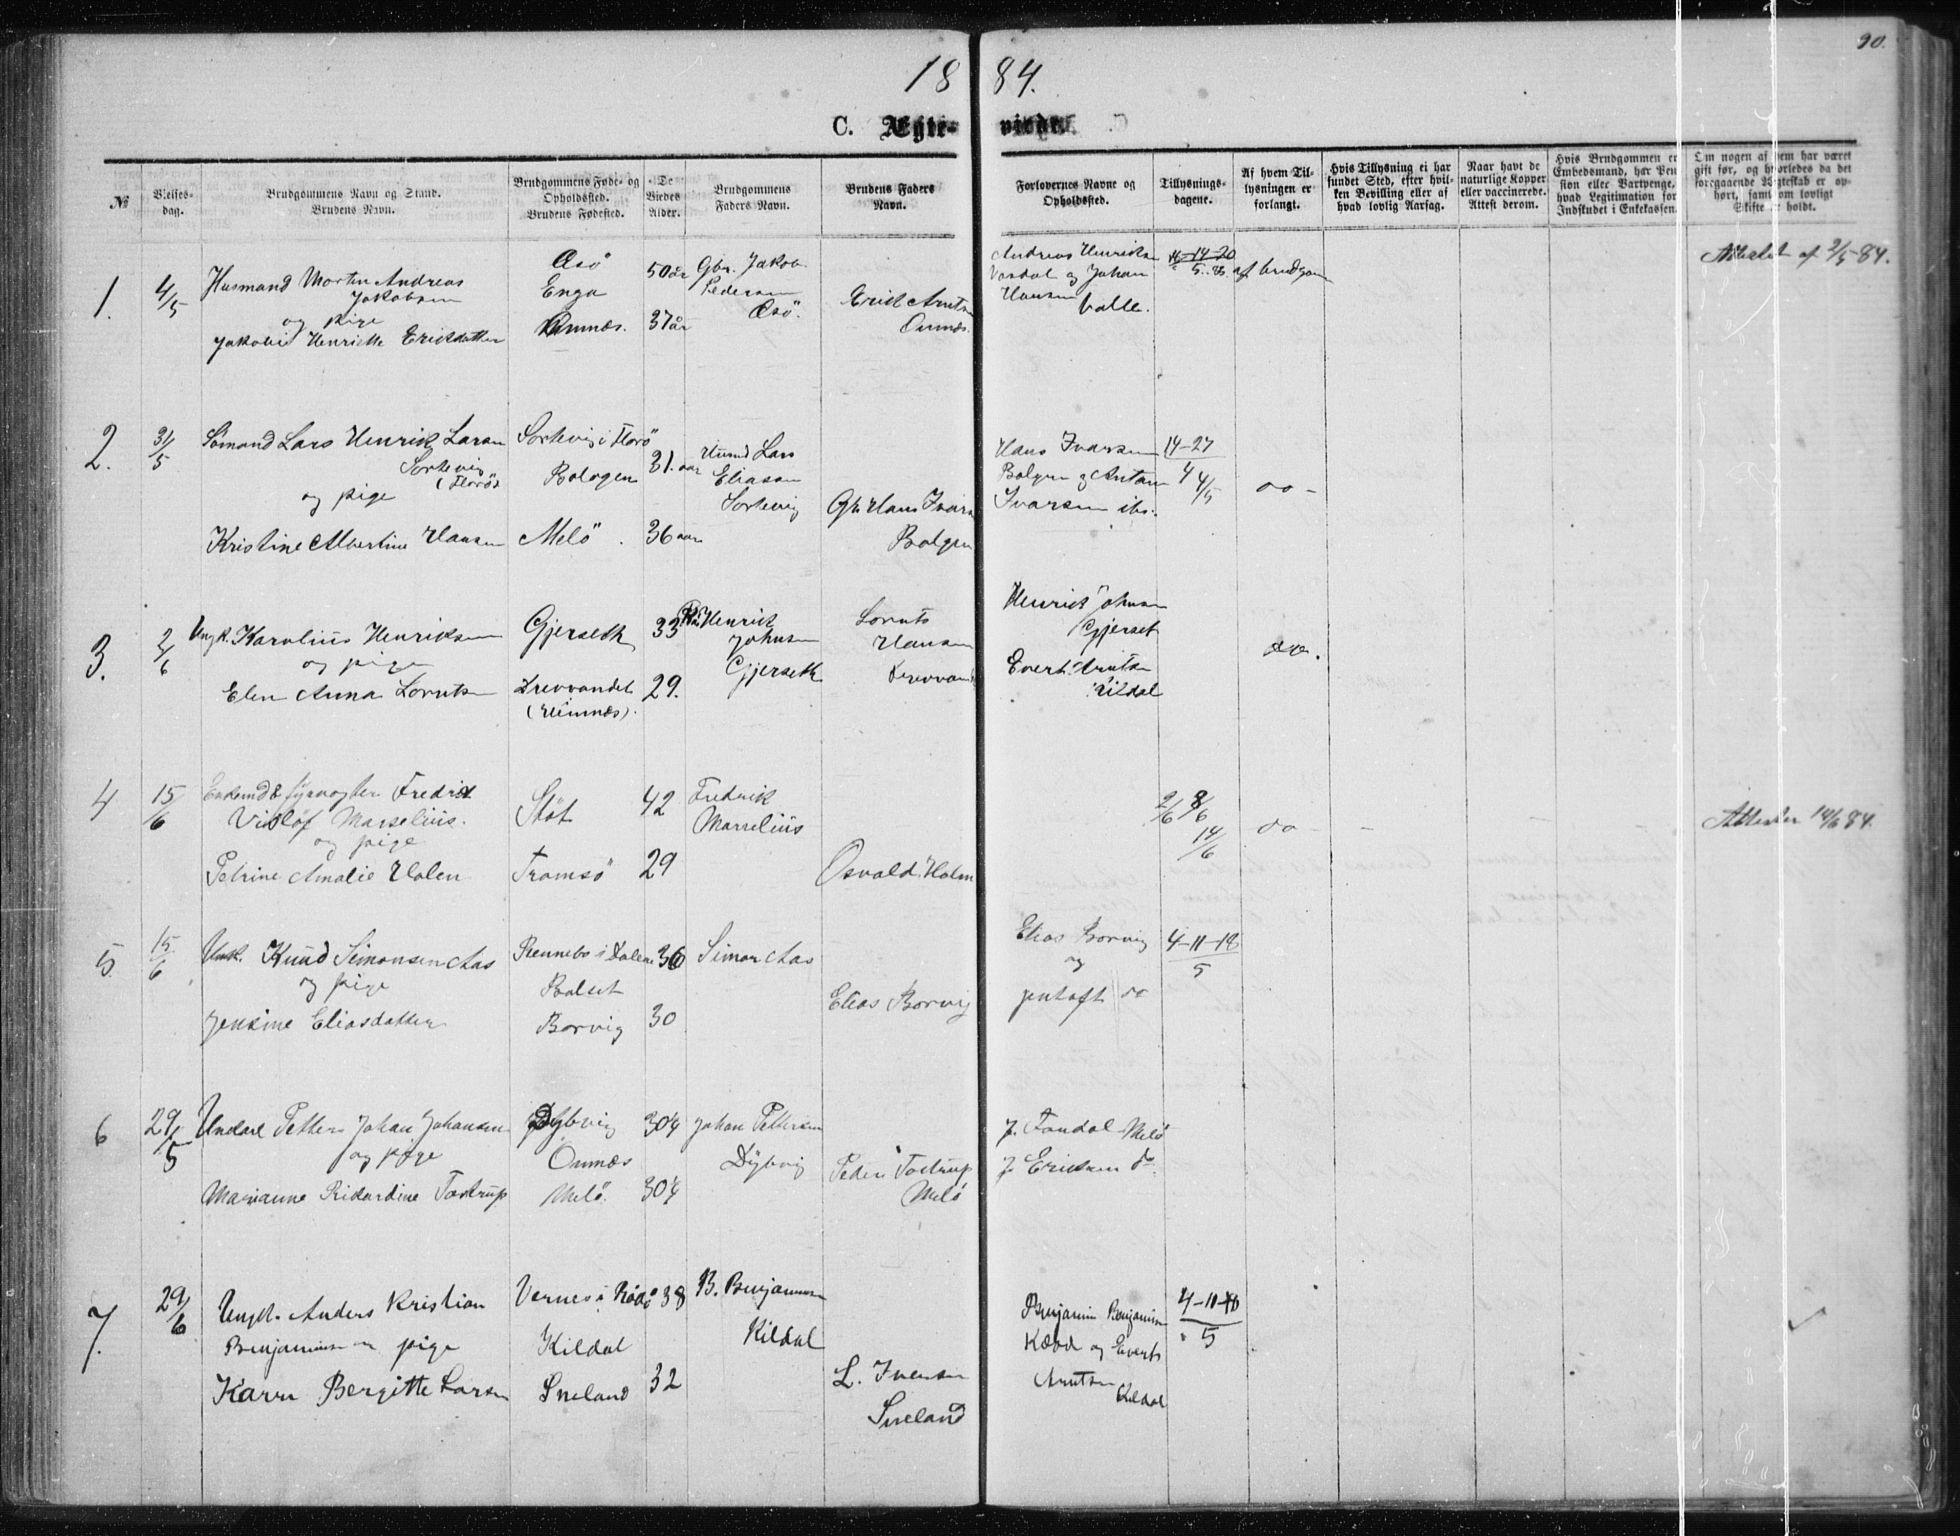 90.
18 84.
C. Ægte- viede.
№
Vielses-
dag.
Brudgommens Navn og Stand.
Brudens Navn.
Brudgommens Føde- og
Opholdssted.
Brudens Fødested.
De
Viedes
Alder.
Brudgommens
Faders Navn.
Brudens Faders
Navn.
Forlovernes Navne og
Opholdssted.
Tillysnings-
dagene.
Af hvem Til-
lysningen er
forlangt.
Hvis Tillysning ei har
fundet Sted, efter hvil-
ken Bevilling eller af
hvad lovlig Aarsag.
Naar havt de
naturlige Kopper
eller vaccinerede.
Attest derom.
Hvis Brudgommen er
Embedsmand, har Pen-
sion eller Vartpenge,
hvad Legitimation for
Indskudet i Enkekassen.
Om nogen af hem har været
gift før, og hvorledes da det
foregaaende Ægteskab er op-
hørt, samt om lovligt
Skifte er holdt.
1.
4/5
Husmand Morten Andreas
Jakobsen
og pige
Jakobie Henrikke Eriksdatter
Øsö
Enga
Ønnæs.
50 år
37 år
Gbr. Jakob
Pedersen
Øsö.
Erick Arnts
Ønnæs.
Andreas Henriksn
Vasdal og Johan
Hansen
Valle.
14-20
5.
af brudgom
Attestet af 2/5 84.
2.
31/5
Sömand Lars Henrik Larsn
Sortevig
(Florö)
og pige
Kristine Albertine Hansen
Sortevig i Florö
Bolgen
Melö
31. aar
36 aar
Husmd Lars
Eliasen
Sortevig
Gbr Hans Ivarsn
Bolgen
Hans Ivarsen
Bolgen og Antom
Ivarsen ibs.
14-27
4 4/5
do -
3.
2/6
Ungk. Karolius Henriksen
og pige
Elen Anna Lorntsn
Gjerseth
Drevvandet
(Hemnæs).
33
29.
Henrik
Johnsen
Gjerseth
Lornts
Hansen
Drevvand
Henrick Johnsn
Gjerset
Evert Arntsn
Kildal
do.
4
15/6
Enkemd & fyrvogter Fredrik
Vidløf Marselius.
og pige
Petrine Amalie Holm
Stöt
Tromsö
42
29
Fredrik
Marselius
Osvald Holm
2/6 8/6
14/6
do - -
Attester 14/6 84.
5
15/6
Unk. Knud Simonsen Aas
og pige
Jensine Eliasdatter
Rennebo i Dalene
Bolset
Borvig
36
30
Simon Aas
Elias Borvig
Elias Borvig
og
Jentoft do
4-11-18
5
6
29/5
Petter Johan Johansen
og pige
Marianne Rikardine Tostrup
Dybvig
Ønnæs
Melö.
30 1/4
30 1/4
Johan Pettersen
Dybvig
Peder Tostrup
Melö
J. Fondal Melö
J. Eriksen do
7.
29/6
Ungk. Anders Kristian
Benjaminsen pige
Karen Bergitte Larsn
Vernes i Rödö
Kildal
Sneland
38
32
B. Benjaminsen
Kildal
L. Iversen
Sneland
Benjamin Benjaminsn
og Everts
Arntsen
Kildal
4-11-18
5